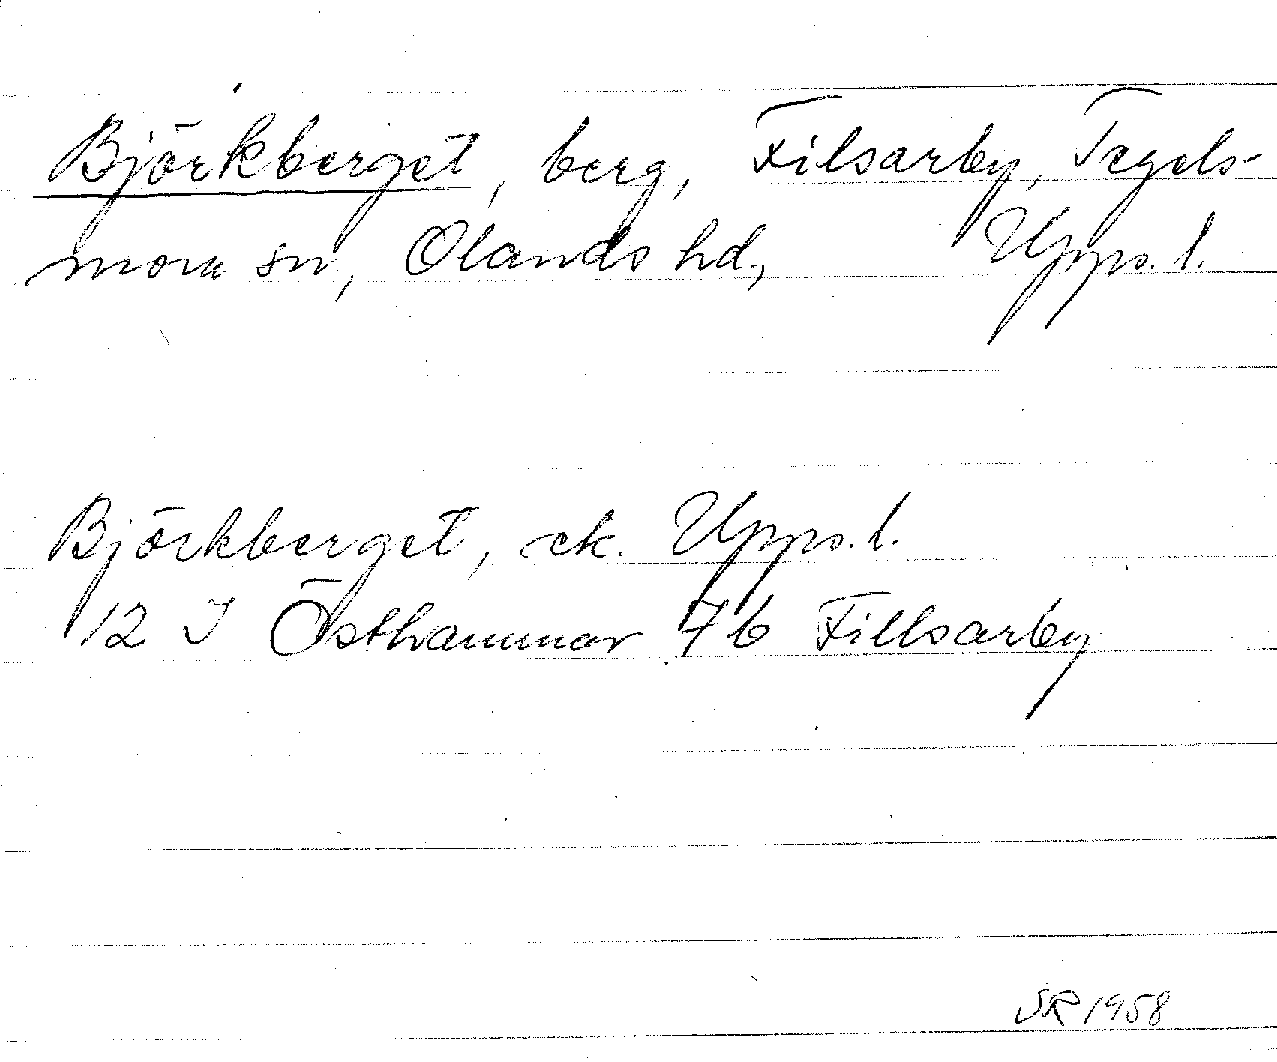 Björkberget, berg, Filsarby, Tegels-
mora sn, Olands hd, Upps. l.
Björkberget, ek. Upps. l.
12 I Östhammar 7 b Fillsarby
SR 1958